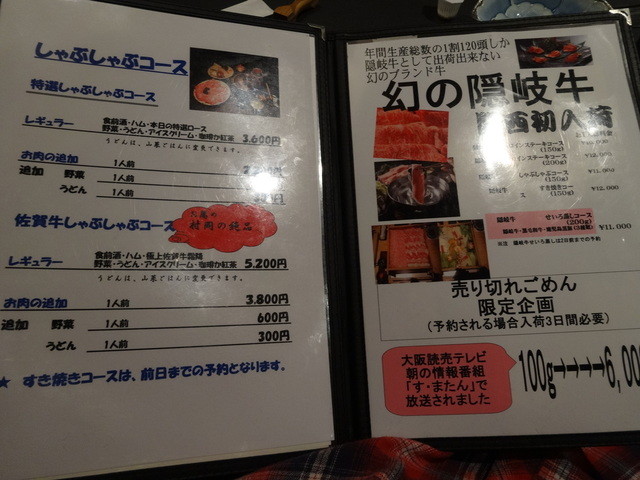 しゃぶしゃぶコース
特選しゃぶしゃぶコース
レギュラー 食前酒・ハム・本日の特選ロース
野菜・うどん・アイスクリーム・珈琲か紅茶 3,600円
うどんは、山菜ごはんに変更できます。
お肉の追加 1人前
追加 野菜 1人前
うどん 1人前
佐賀牛しゃぶしゃぶコース
村岡の純品
レギュラー 食前酒・ハム・極上佐賀牛霜降
野菜・うどん・アイスクリーム・珈琲か紅茶 5,200円
うどんは、山菜ごはんに変更できます。
お肉の追加 1人前 3,800円
追加 野菜 1人前 600円
うどん 1人前 300円
★ すき焼きコースは、前日までの予約となります。
年間生産総数の1割120頭しか
隠岐牛として出荷出来ない
幻のブランド牛
幻の隠岐牛
西初入荷
(150g)
(200g) ¥12,000
しゃぶしゃぶコース
(150g) ¥11,000
すき焼きコース
(150g) ¥12,000
隠岐牛 せいろ蒸しコース
(200g) ¥11,000
売り切れごめん
限定企画
(予約される場合入荷3日間必要)
大阪読売テレビ
朝の情報番組
「す・またん」で
放送されました
100g→→→→6,00